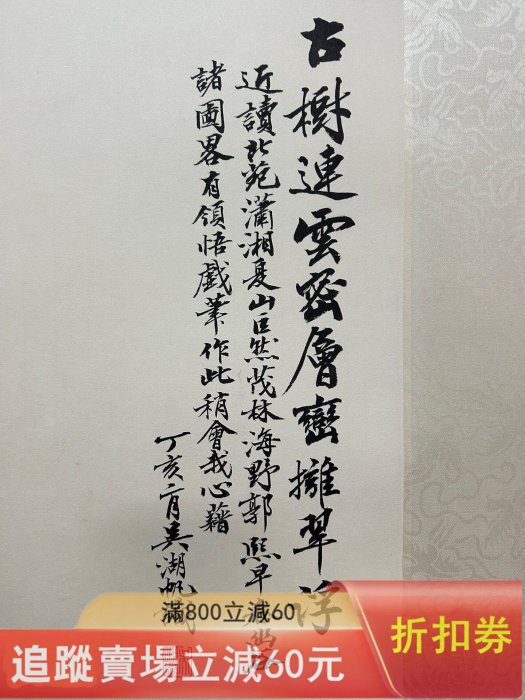 古樹連雲密層巒擁翠浮
近讀北苑瀟湘夏山巨然茂林海野郭熙早
諸圖畧有領悟戲筆作此稍會我心藉
丁亥二月吳湖帆
滿800立減60
追蹤賣場立減60元
折扣券